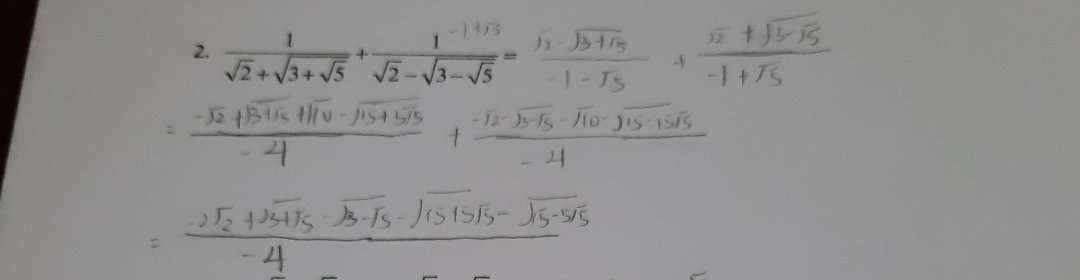 2. 1/(√2+√(3+√5)) + 1/(√2-√(3-√5)) = (√2-√(3+√5))/(-1-√5) + (√2+√(3-√5))/(-1+√5)
-1+√5
= (-√2+√(3+√5)+√10-√(15+5√5))/-4 + (-√2-√(3-√5)-√10-√(15-15√5))/-4
= (-2√2+√(3+√5)-√(3-√5)-√(15+5√5)-√(15-5√5))/-4